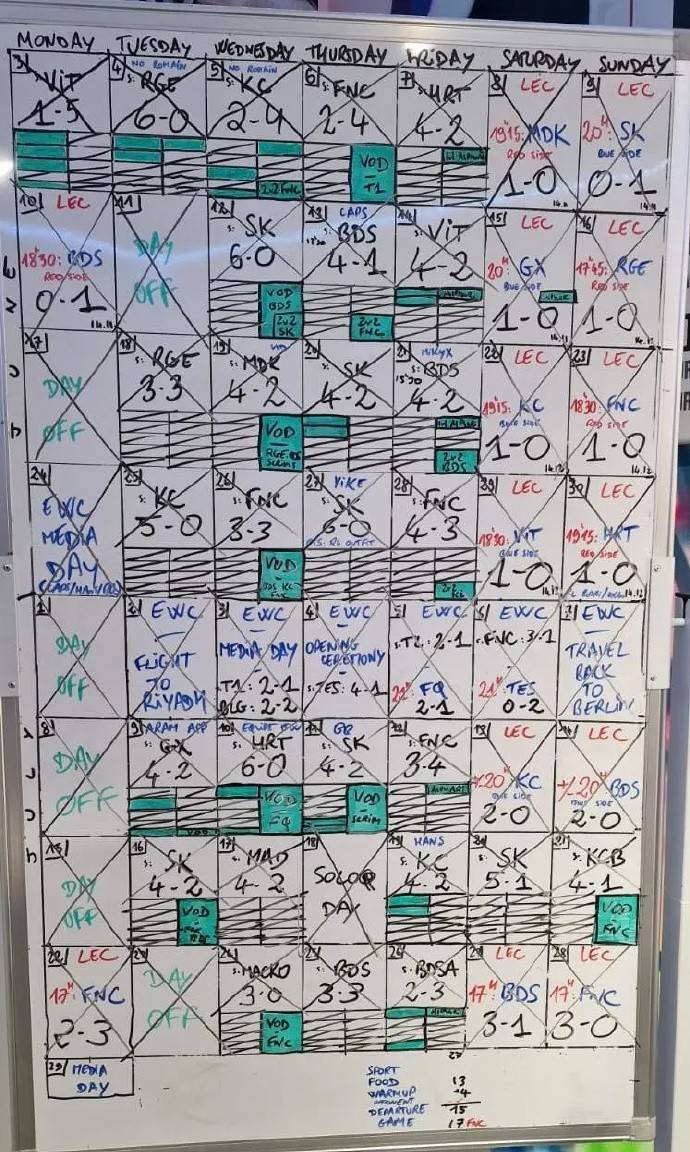 MONDAY TUESDAY WEDNESDAY THURSDAY FRIDAY SATURDAY SUNDAY
3 4 NO ROMAIN 5 NO ROMAIN 6 7 8 LEC 9 LEC
VIT s: RGE s: KC s: FNC s: HRT 19H15: MDK 20H: SK
RED SIDE BLUE SIDE
1-5 6-0 2-4 2-4 4-2 1-0 0-1
VOD - T1
2v2 FNC
10 LEC 11 12 13 CAPS 14 15 LEC 16 LEC
18H30: BDS DAY OFF SK BDS s: VIT 20H GX 17H45: RGE
RED SIDE BLUE SIDE RED SIDE
0-1 6-0 4-1 4-2 1-0 1-0
VOD BDS
2v2 SK 2v2 FNC
JUNE
17 18 19 20 21 MIKYX 22 LEC 23 LEC
DAY OFF s: RGE s: MDK s: SK s: BDS 19H15: KC 18H30: FNC
15H30 BLUE SIDE RED SIDE
3-3 4-2 4-2 4-2 1-0 1-0
VOD
2v2 BDS
24 25 26 27 YIKE 28 29 LEC 30 LEC
EWC MEDIA DAY s: KC s: FNC s: SK s: FNC 18H30: VIT 19H15: HRT
BLUE SIDE RED SIDE
5-0 3-3 6-0 4-3 1-0 1-0
VOD
1 2 EWC 3 EWC 4 EWC 5 EWC 6 EWC 7 EWC
DAY OFF FLIGHT TO RIYADH MEDIA DAY OPENING CEREMONY s: TL: 2-1 s: FNC: 3-1 TRAVEL BACK TO BERLIN
s: T1: 2-1 s: TES: 4-1 21H FQ 21H: TES
BLG: 2-2 2-1 0-2
JULY
8 9 10 11 12 13 LEC 14 LEC
DAY OFF s: GX s: HRT s: SK s: FNC +/- 20H KC +/- 20H BDS
BLUE SIDE BLUE SIDE
4-2 6-0 4-2 3-4 2-0 2-0
VOD - FQ VOD - SCRIM
15 16 17 18 19 HANS 20 21
DAY OFF s: SK s: MAD SOLOQ DAY s: KC s: SK s: KCB
4-2 4-2 4-2 5-1 4-1
VOD VOD - FNC
22 LEC 23 24 25 26 27 LEC 28 LEC
17H FNC DAY OFF s: MACKO s: BDS s: BDSA 17H: BDS 17H: FNC
2-3 3-0 3-3 2-3 3-1 3-0
VOD - FNC
29 MEDIA DAY
SPORT
FOOD 13
WARMUP 14
OPPONENT
DEPARTURE 15
GAME 17 FNC